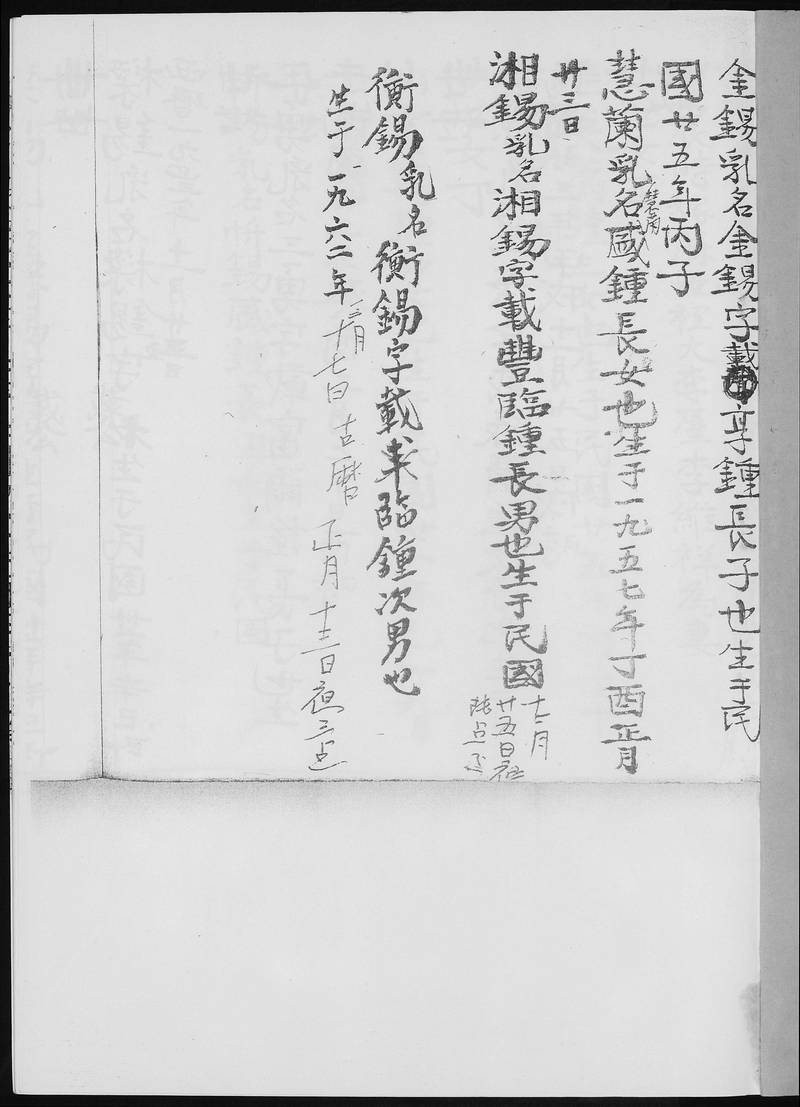 金錫乳名金錫字載享鍾長子也生于民
國廿五年丙子
慧蘭乳名鍾長女也生于一九五七年丁酉正月
廿三日
湘錫乳名湘錫字載豐臨鍾長男也生于民國
十二月
廿五日
衡錫乳名衡錫字載臨鍾次男也
生于一九六二年二月十七日古曆正月十三日夜三点